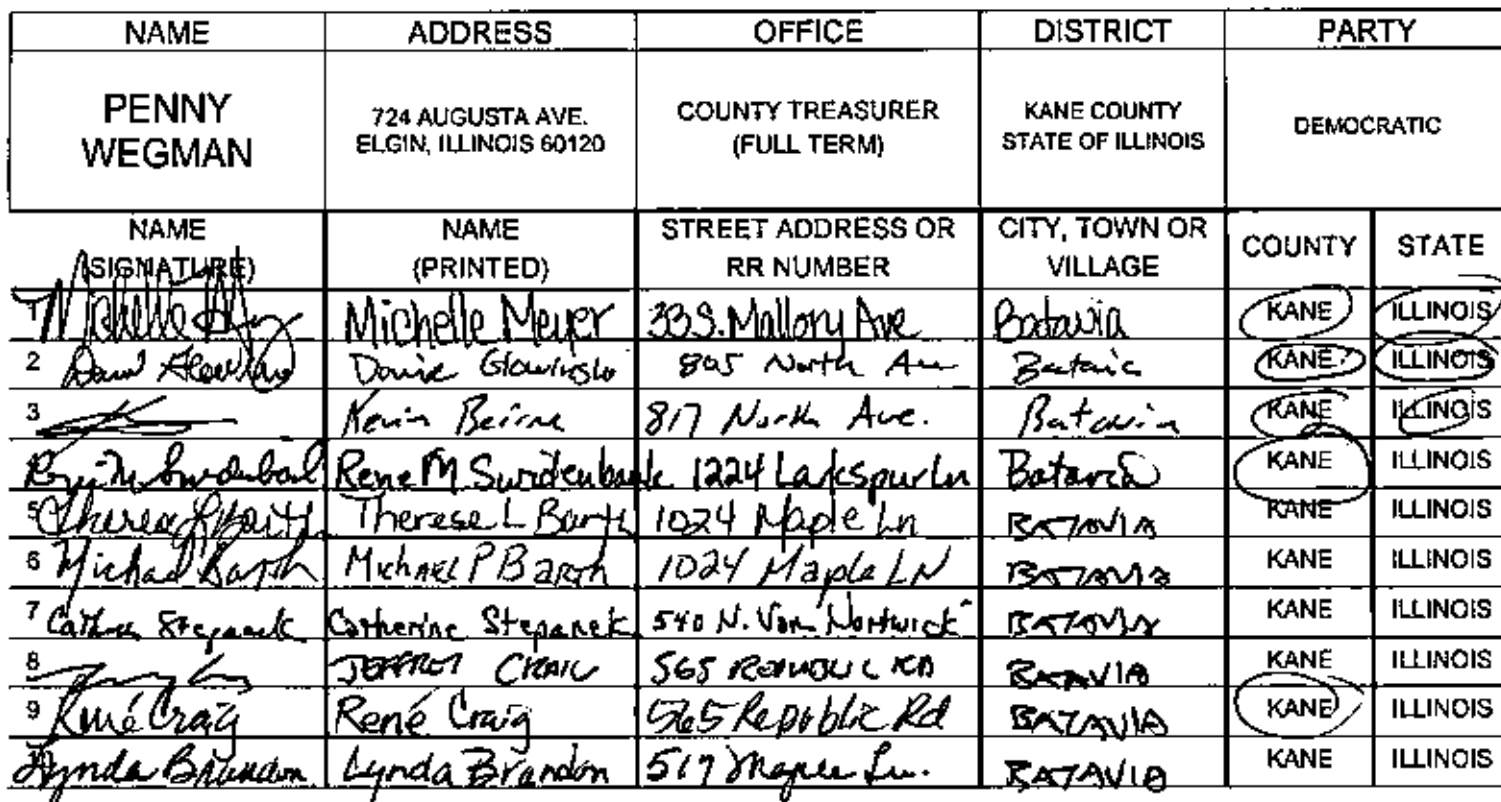 NAME ADDRESS OFFICE DISTRICT PARTY
PENNY WEGMAN 724 AUGUSTA AVE. ELGIN, ILLINOIS 60120 COUNTY TREASURER (FULL TERM) KANE COUNTY STATE OF ILLINOIS DEMOCRATIC
NAME (SIGNATURE) NAME (PRINTED) STREET ADDRESS OR RR NUMBER CITY, TOWN OR VILLAGE COUNTY STATE
1 Michelle Michelle Meyer 33 S. Mallory Ave Batavia KANE ILLINOIS
2 805 North Ave Batavia KANE ILLINOIS
3 Kevin Beirne 817 North Ave. Batavia KANE ILLINOIS
Rene M 1224 Larkspur Ln Batavia KANE ILLINOIS
5 Therese L Barth 1024 Maple Ln BATAVIA KANE ILLINOIS
6 Michael Barth Michael P Barth 1024 Maple LN BATAVIA KANE ILLINOIS
7 Stepanek Catherine Stepanek 540 N. Van Nortwick BATAVIA KANE ILLINOIS
8 JEFFREY CRAIG 565 REPUBLIC RD BATAVIA KANE ILLINOIS
9 René Craig René Craig 565 Republic Rd BATAVIA KANE ILLINOIS
Lynda Brandon Lynda Brandon 517 Maple Ln. BATAVIA KANE ILLINOIS